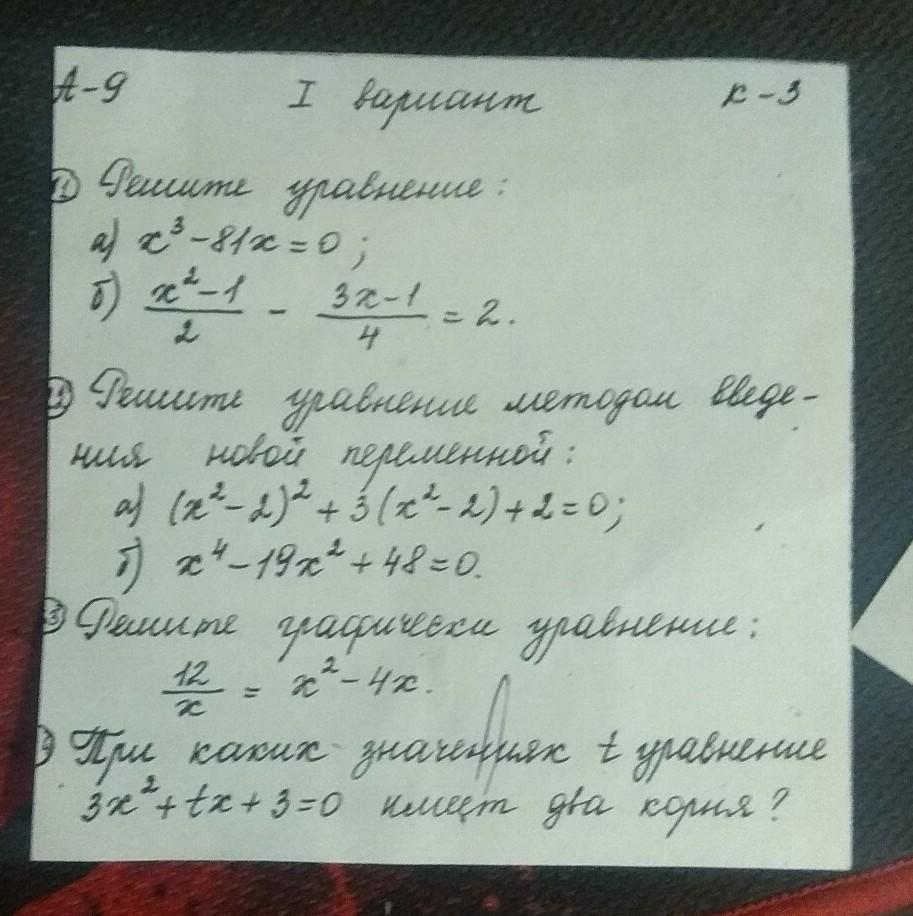 А-9 I вариант К-3
1) Решите уравнение:
а) x³ - 81x = 0;
б) (x² - 1)/2 - (3x - 1)/4 = 2.
2) Решите уравнение методом введе-
ния новой переменной:
а) (x² - 2)² + 3(x² - 2) + 2 = 0;
б) x⁴ - 19x² + 48 = 0.
3) Решите графически уравнение:
12/x = x² - 4x.
При каких значениях t уравнение
3x² + tx + 3 = 0 имеет два корня?